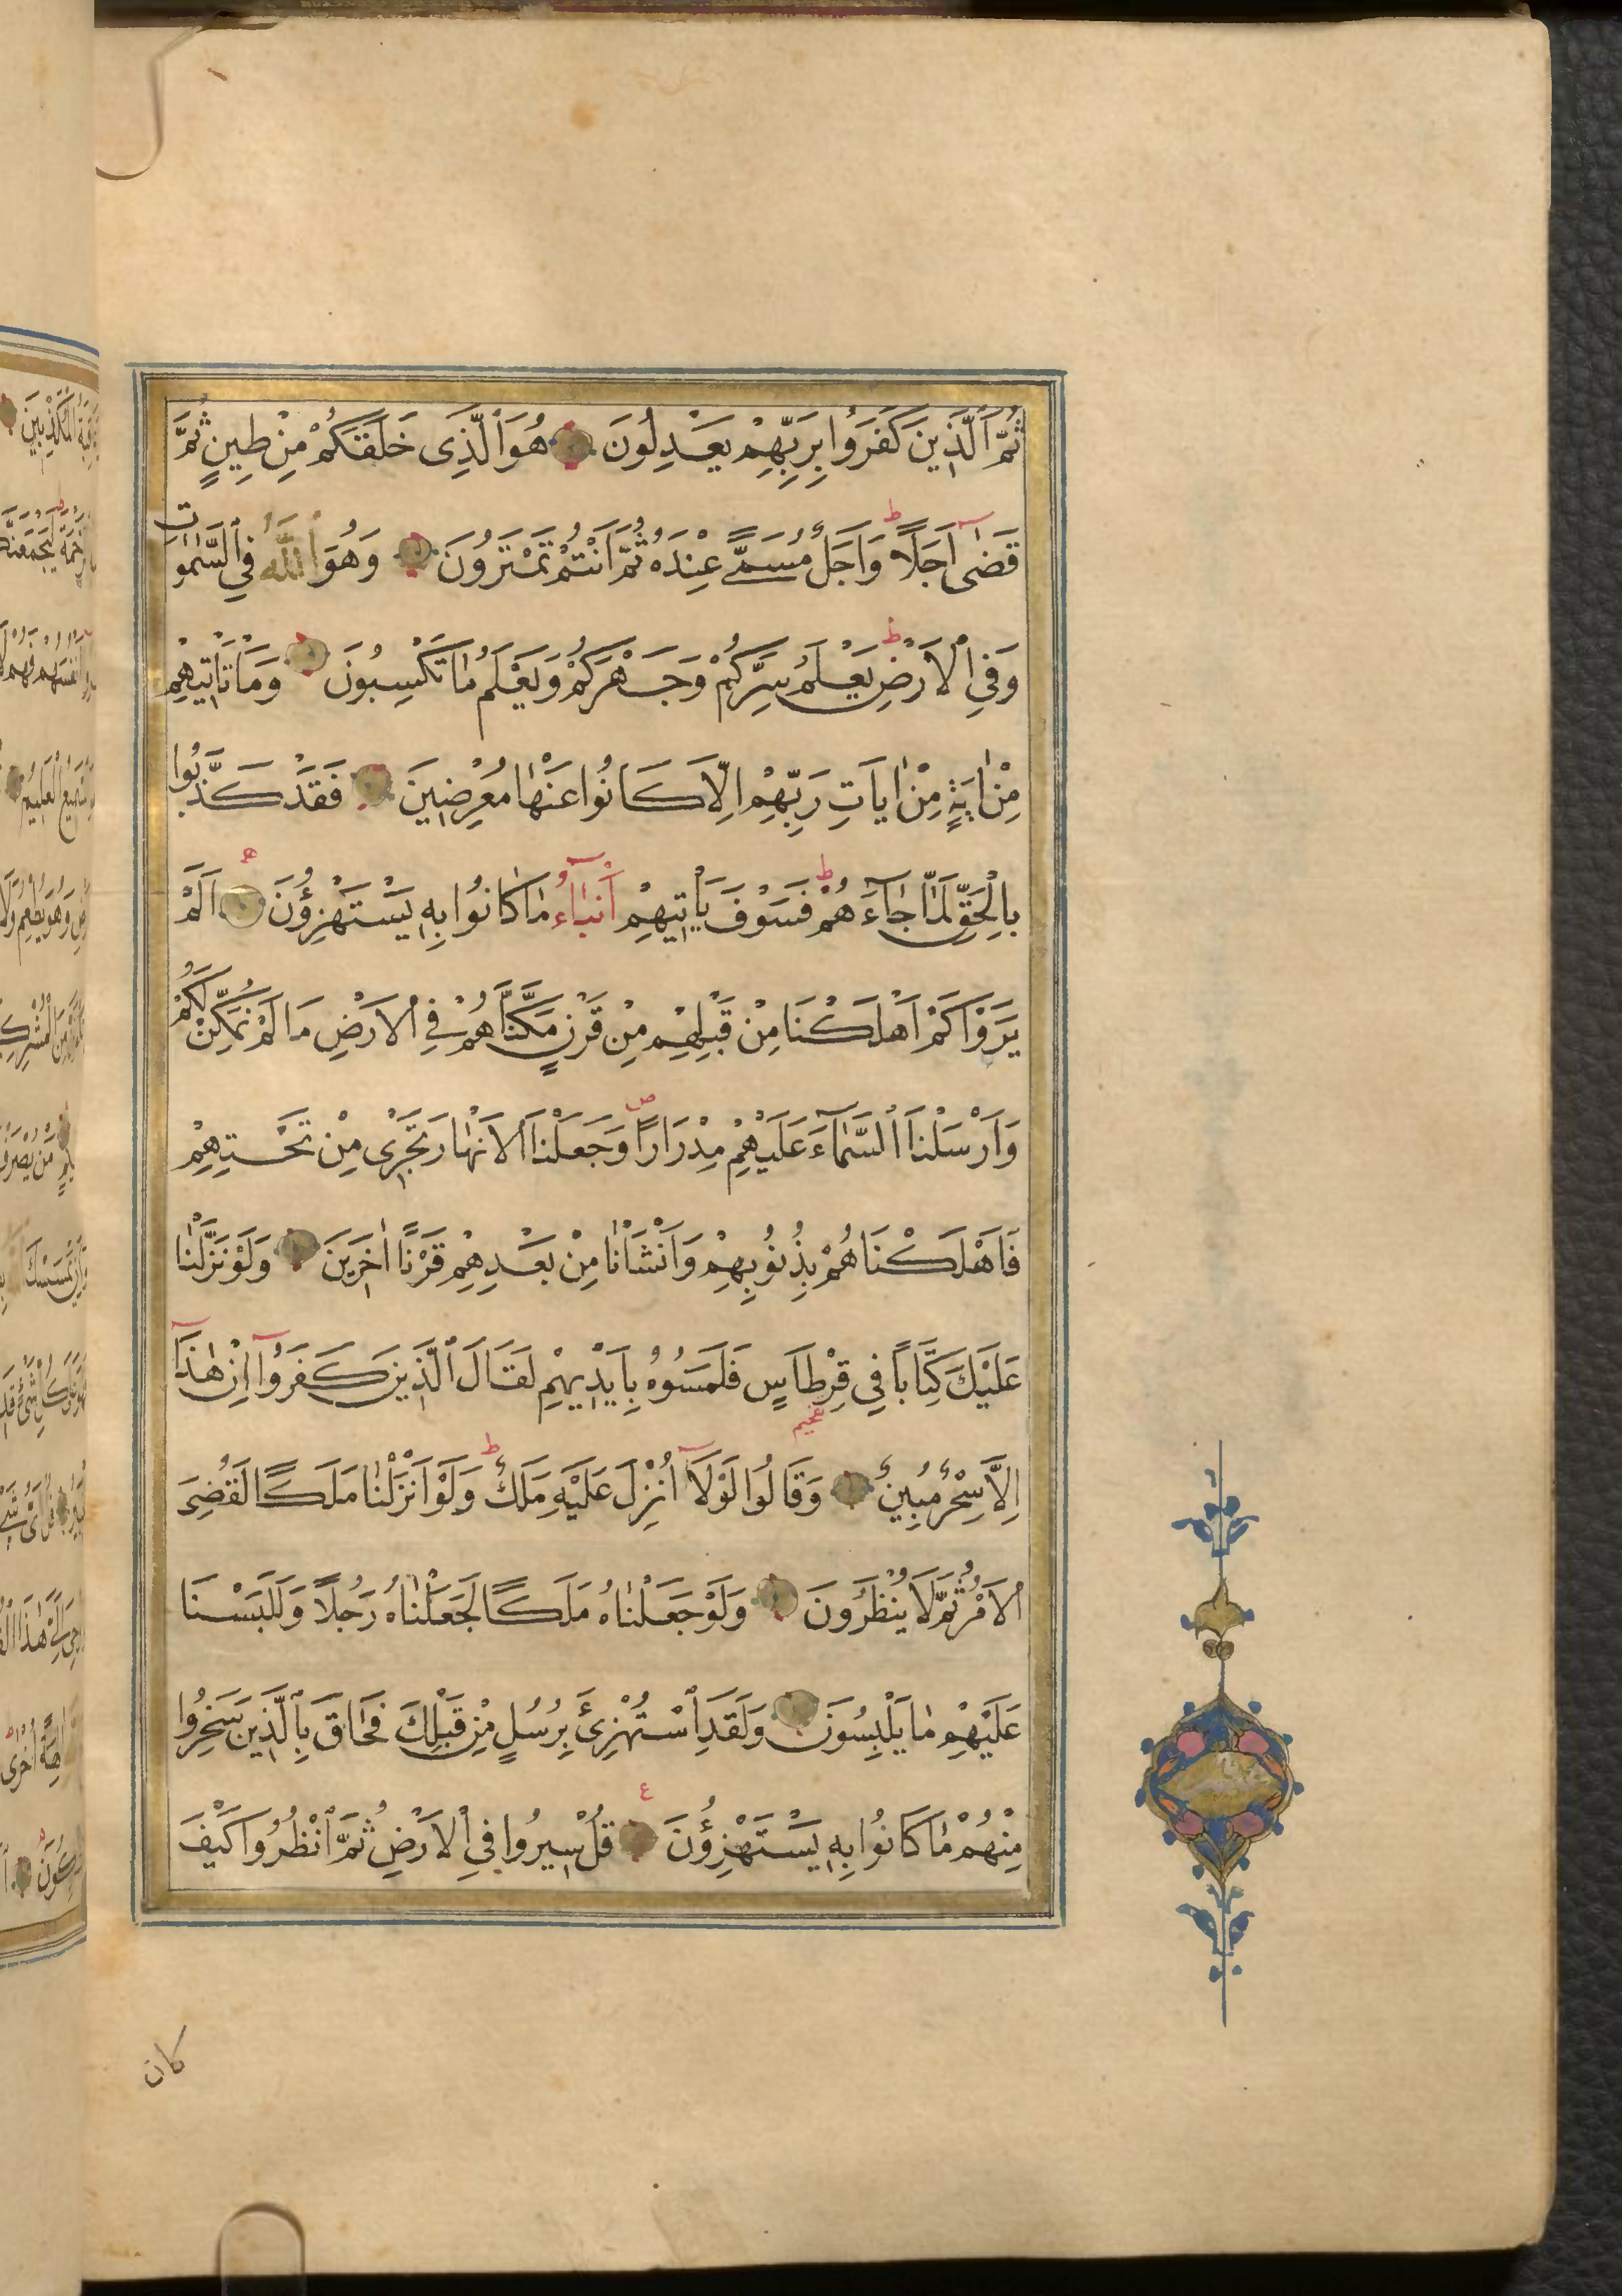 ثُمَّ الَّذِينَ كَفَرُوا بِرَبِّهِمْ يَعْدِلُونَ هُوَ الَّذِى خَلَقَكُمْ مِنْ طِينٍ ثُمَّ
قَضٰٓى اَجَلًا ط وَاَجَلٌ مُسَمًّى عِنْدَهُ ثُمَّ اَنْتُمْ تَمْتَرُونَ وَهُوَ اللّٰهُ فِي السَّمٰوَاتِ
وَفِي الْاَرْضِ ط يَعْلَمُ سِرَّكُمْ وَجَهْرَكُمْ وَيَعْلَمُ مَا تَكْسِبُونَ وَمَا تَاْتِيهِمْ
مِنْ اٰيَةٍ مِنْ اٰيَاتِ رَبِّهِمْ اِلَّا كَانُوا عَنْهَا مُعْرِضِينَ فَقَدْ كَذَّبُوا
بِالْحَقِّ لَمَّا جَٓاءَهُمْ ط فَسَوْفَ يَاْتِيهِمْ اَنْبٰٓاءُ مَا كَانُوا بِهِ يَسْتَهْزِؤُنَ ه اَلَمْ
يَرَوْا كَمْ اَهْلَكْنَا مِنْ قَبْلِهِمْ مِنْ قَرْنٍ مَكَّنَّاهُمْ فِي الْاَرْضِ مَا لَمْ نُمَكِّنْ لَكُمْ
وَاَرْسَلْنَا السَّمَٓاءَ عَلَيْهِمْ مِدْرَارًا ص وَجَعَلْنَا الْاَنْهَارَ تَجْرِى مِنْ تَحْتِهِمْ
فَاَهْلَكْنَاهُمْ بِذُنُوبِهِمْ وَاَنْشَاْنَا مِنْ بَعْدِهِمْ قَرْنًا اٰخَرِينَ وَلَوْ نَزَّلْنَا
عَلَيْكَ كِتَابًا فِي قِرْطَاسٍ فَلَمَسُوهُ بِاَيْدِيهِمْ لَقَالَ الَّذِينَ كَفَرُٓوا اِنْ هٰذَٓا
اِلَّا سِحْرٌ مُبِينٌ وَقَالُوا لَوْلَٓا اُنْزِلَ عَلَيْهِ مَلَكٌ ط وَلَوْ اَنْزَلْنَا مَلَكًا لَقُضِيَ
الْاَمْرُ ثُمَّ لَا يُنْظَرُونَ وَلَوْ جَعَلْنَاهُ مَلَكًا لَجَعَلْنَاهُ رَجُلًا وَلَلَبَسْنَا
عَلَيْهِمْ مَا يَلْبِسُونَ وَلَقَدِ اسْتُهْزِئَ بِرُسُلٍ مِنْ قَبْلِكَ فَحَاقَ بِالَّذِينَ سَخِرُوا
مِنْهُمْ مَا كَانُوا بِهِ يَسْتَهْزِؤُنَ ع قُلْ سِيرُوا فِي الْاَرْضِ ثُمَّ انْظُرُوا كَيْفَ
كان